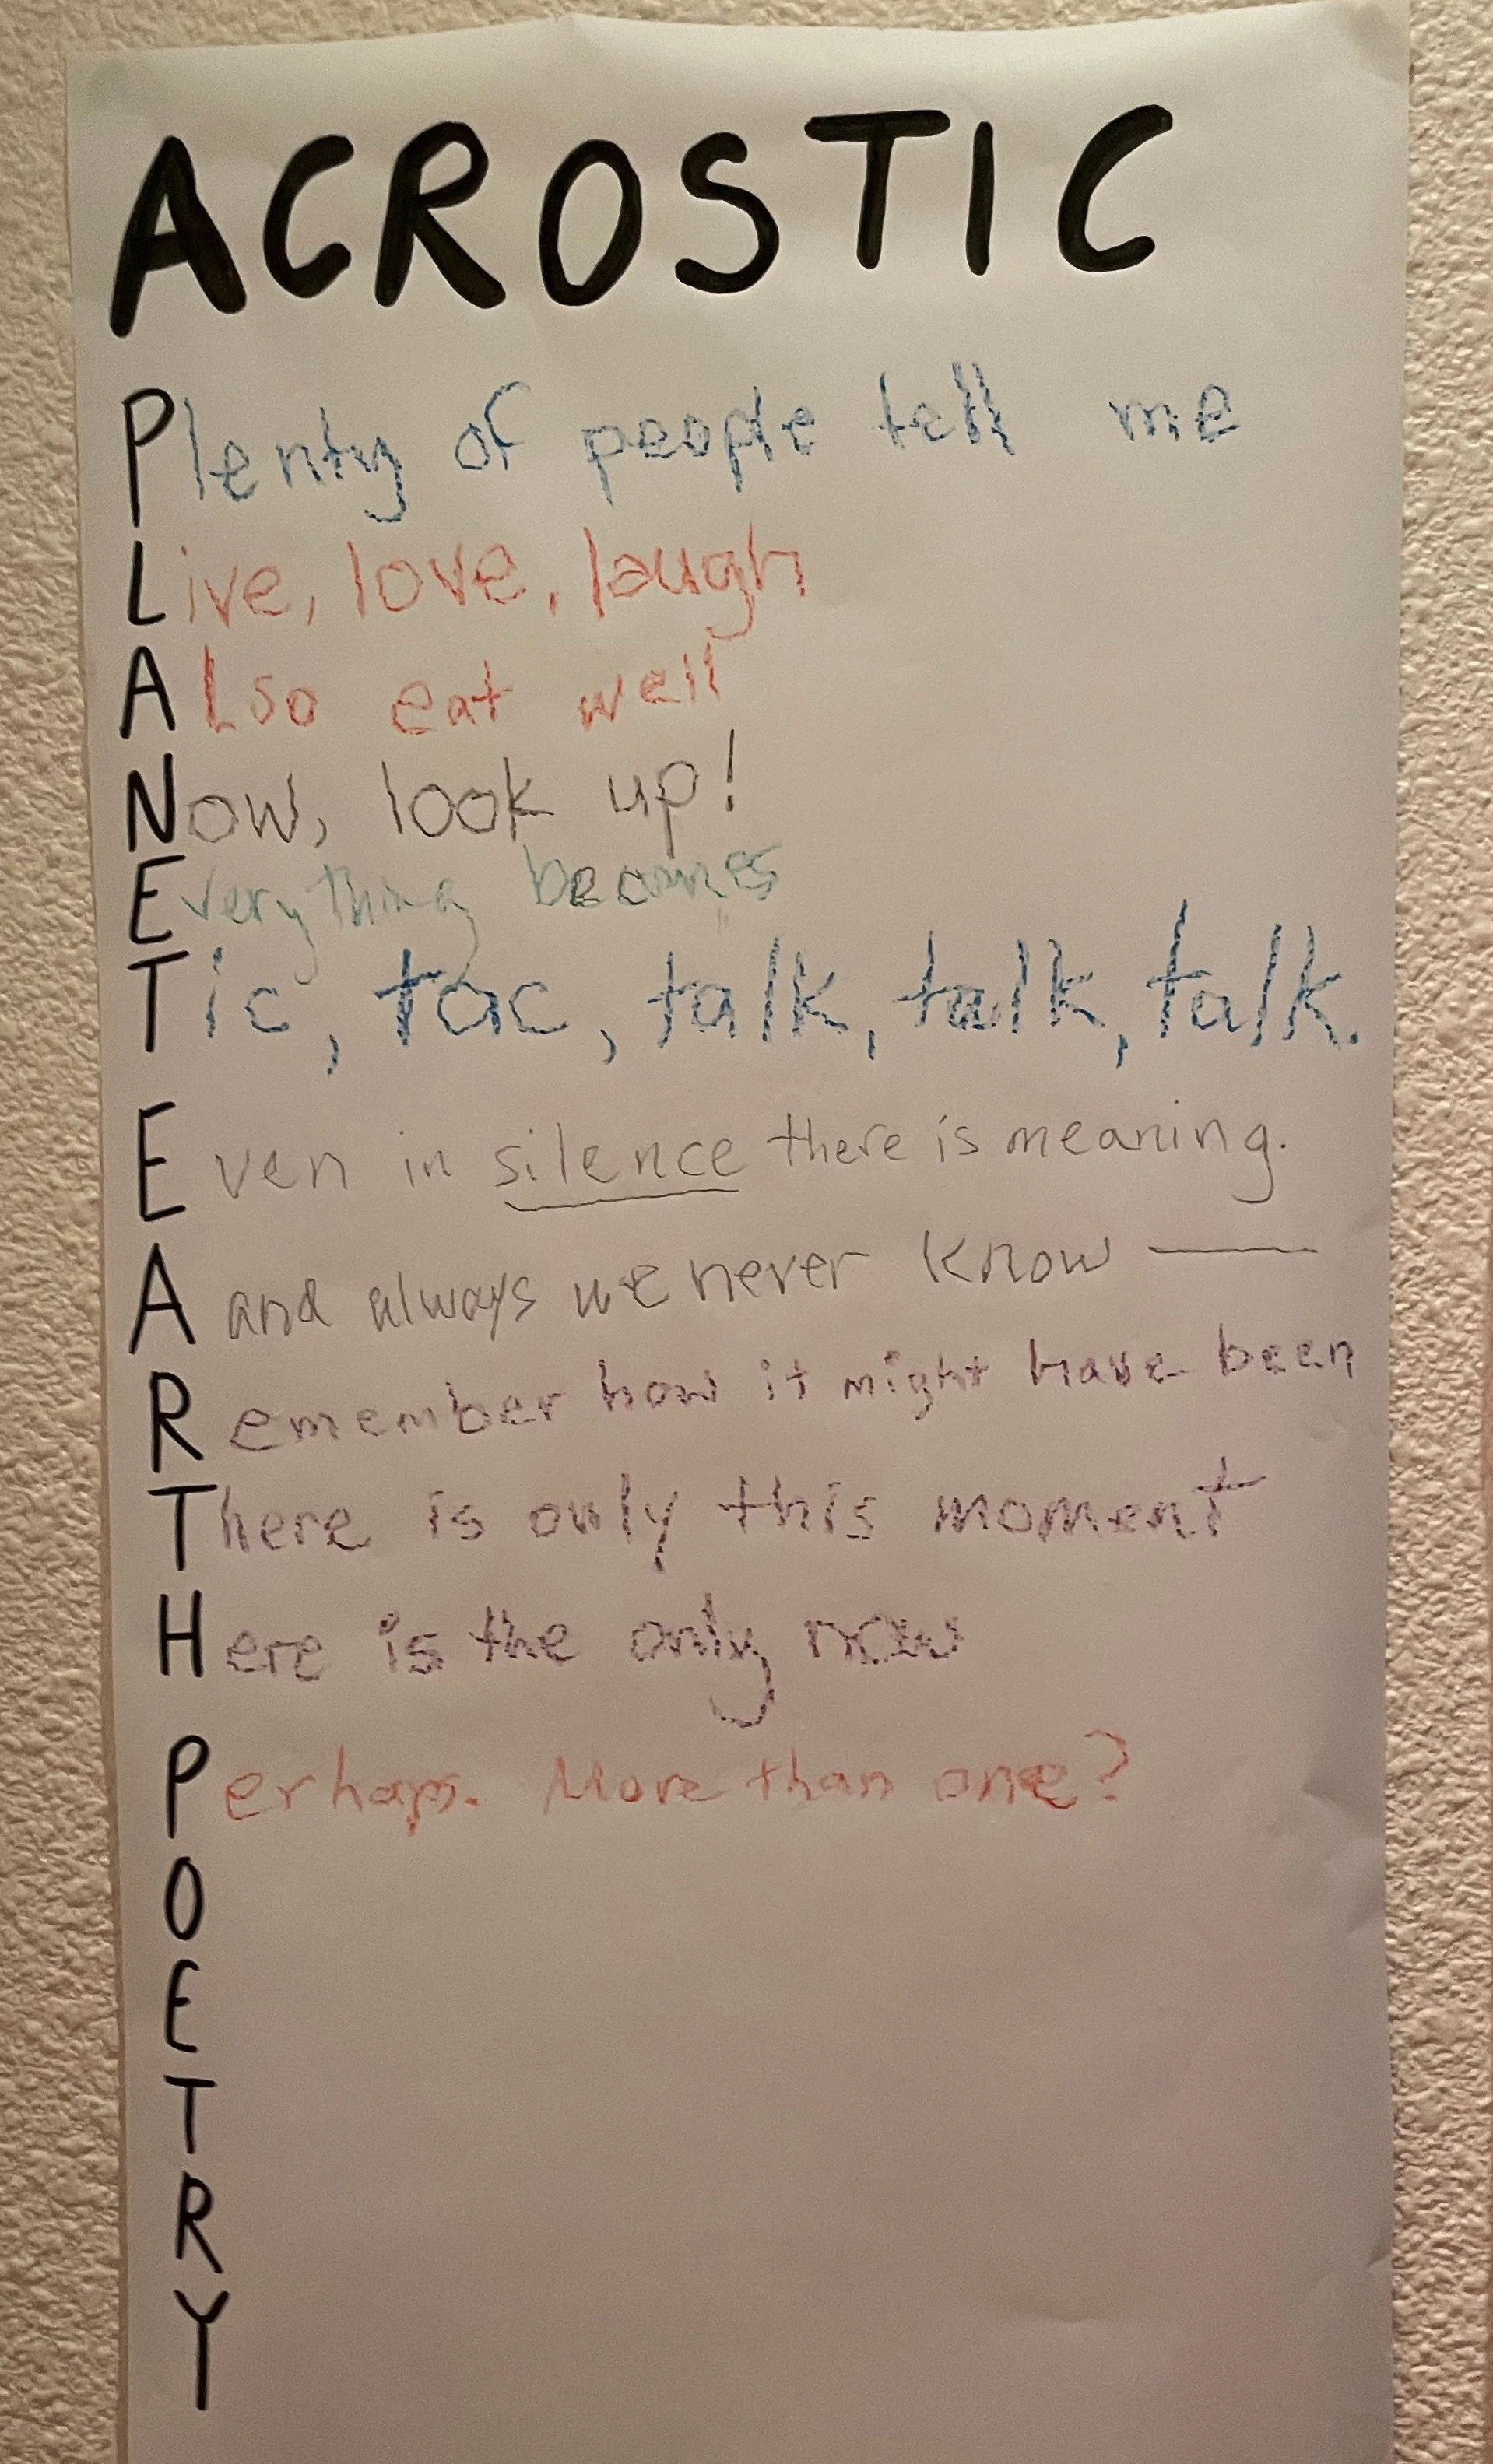 ACROSTIC
Plenty of people tell me
Live, love, laugh
ALso eat well
Now, look up!
Everything becomes
Tic, tac, talk, talk, talk.
Even in silence there is meaning.
A and always we never know —
Remember how it might have been
There is only this moment
Here is the only now
Perhaps. More than one?
O
E
T
R
Y